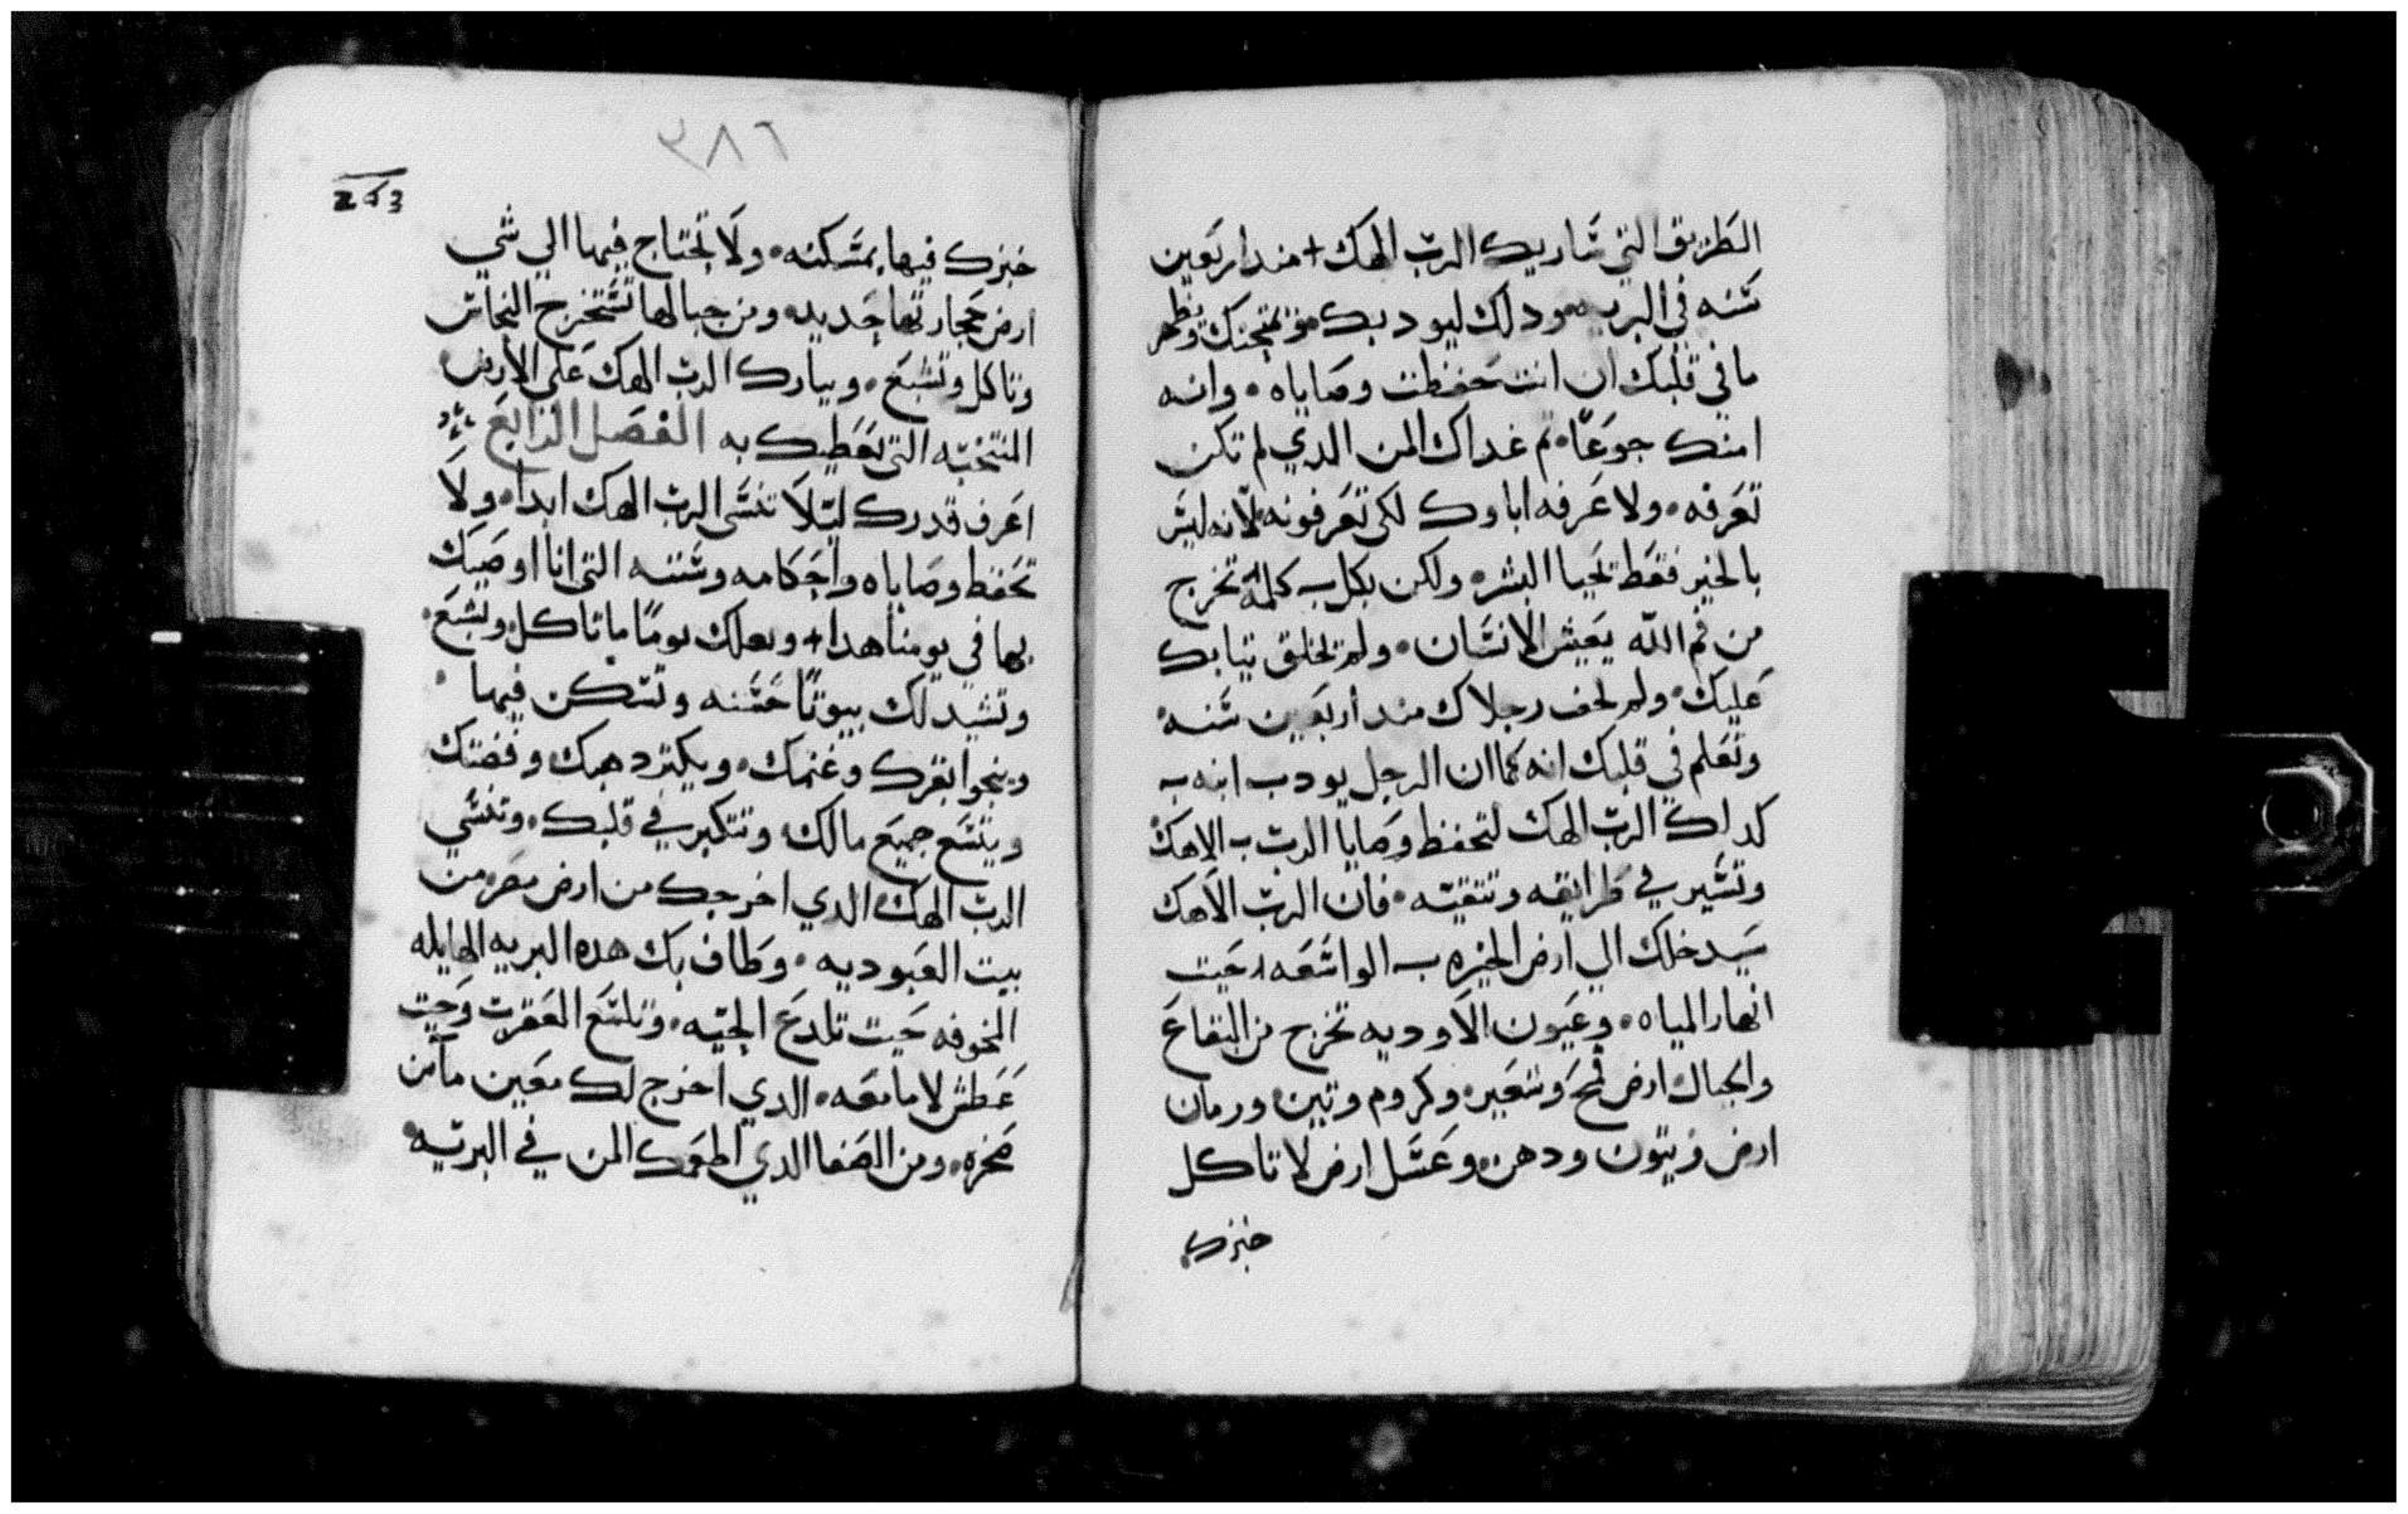 الطريق التي سَاريك الرب الهك + مند اربَعين
سَنه في البريه ودلك ليودبك ويمتحنك ويظهر
ما في قلبك ان انت حَفظت وصاياه • وانه
امتك جوعًا • تم غداك المن الدي لم تكن
تعَرفه • ولا عَرفه اباوك لكي تعَرفونه لانه ليسَ
بالخبز فقط يَحيا البشر • ولكن بكل كلمة تخرج
من فم الله يعَيش الانسَان • ولم تخلق تيابك
عَليك • ولم تحف رجلاك مند اربَعين سَنه
وتعَلم في قلبك انه كما ان الرجل يودب ابنه
كداك الرب الهك لتحفظ وصَايا الرب الاهك
وتسَير في طرايقه وتتقيه • فان الرب الاهك
سَيدخلك الي ارض الخيره الواسَعَه • حَيت
انهار المياه • وعَيون الاوديه تخرج من البقاعَ
والجبال • ارض قمحَ وشعَير • وكروم وتين • ورمان
ارض زيتون ودهن • وعَسَل ارض لا تاكل
خبزك
٣٨٦
خبزك فيها بمسَكنه • ولَا تحتاج فيها الي شي
ارض حَجارتها حَديد • ومن جبالها تسَتخرج النحاسَ
وتاكل وتشبعَ • ويبارك الرب الهك عَلي الارض
المنتخبه التي يعَطيك به الفصَل الرابعَ
اعَرف قدرك ليَلَا تنسَي الرب الهك ابدا • ولَا
تحَفظ وصَاياه واحَكامه وسَننه التي انا اوصَيك
بها في يومنا هدا + ولعلك يومًا ما تاكل وتشبعَ •
وتشيد لك بيوتًا حَسَنه وتسَكن فيها •
وينجوا بقرك وغنمك • ويكتر دهبك وفضتك
ويتسَع جميعَ مالك • وتتكبر في قلبك • وتنسَي
الرب الهك الدي اخرجك من ارض مصَر من
بيت العَبوديه • وطاف بك هده البريه الهايله
المخوفه حَيت تلدعَ الحيَه • وتلسَع العَقرب وحَيت
عَطش لا ما معَه • الدي اخرج لك معَين ما من
صَخره • ومن الصَفا الدي اطعمَك المن في البريه •